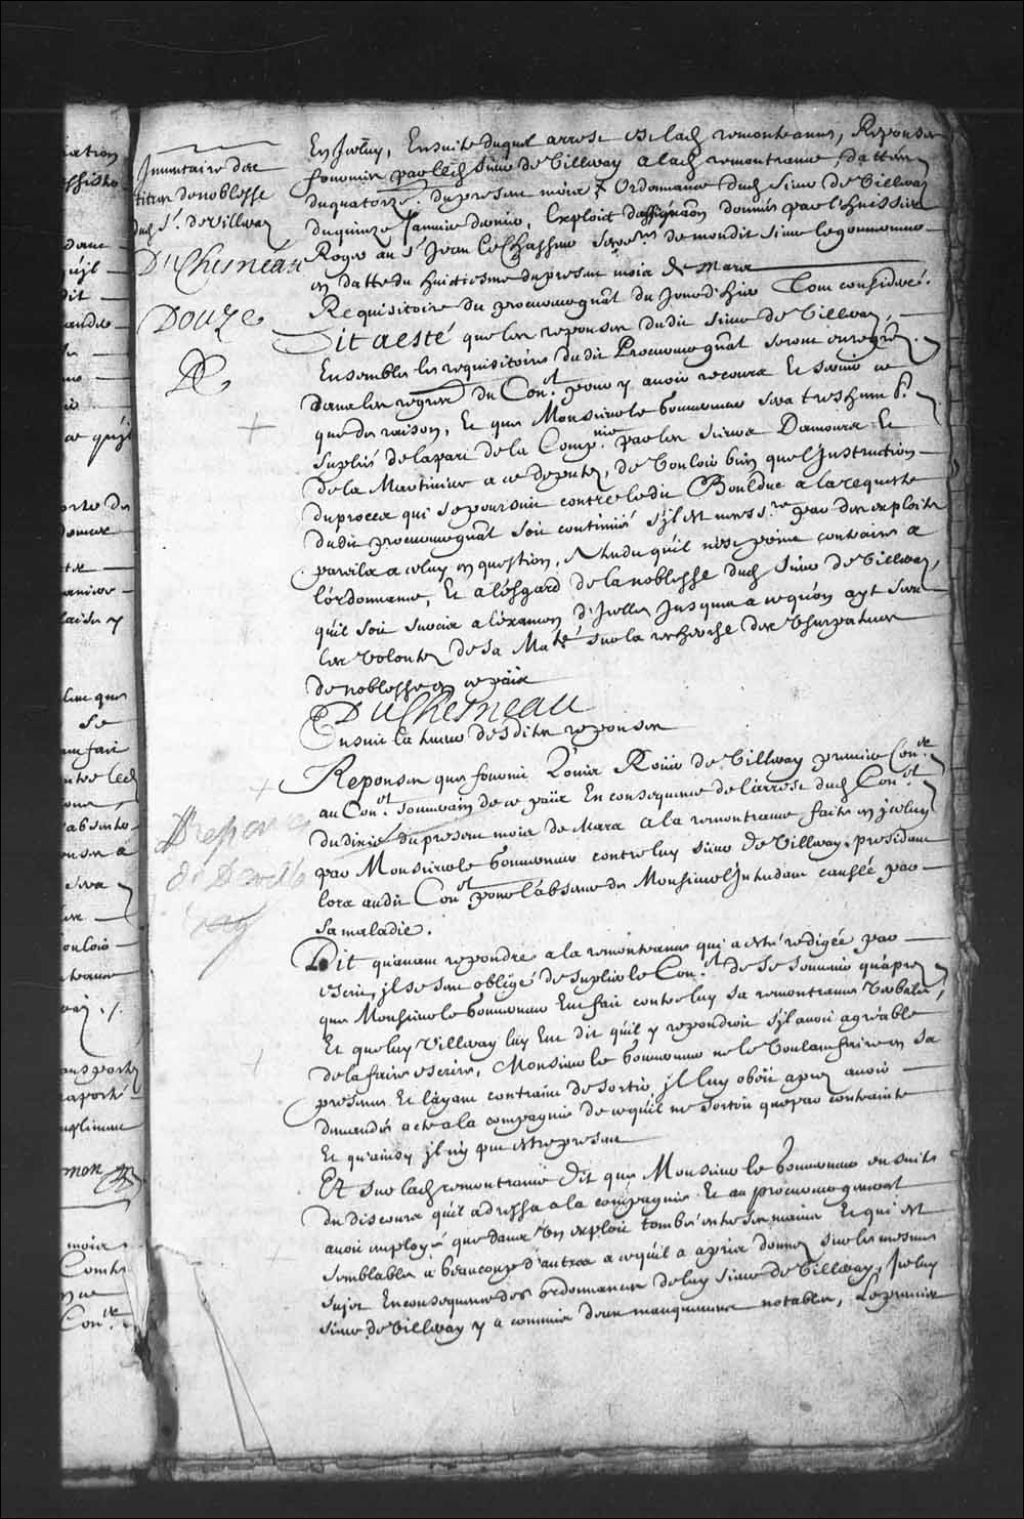 Innuentaire des
titres de noblesse
dud. Sr. de Villeray
DuChesneau
Douze
En Iceluy, Ensuite duquel arrest est lad. remontrance, Reponses
fournies par led. Sieur de Villeray a lad. remontrance, dattées
du quatorze. du present mois, Ordonnance dud. Sieur de Villeray
du quinze Janvier dernier, Exploit d'assignaon donnée par l'huissier
Roger au Sr. Jean le Chasseur secre. de mondit Sieur le gouverneur
en datte du huictiesme du present mois de Mars
Requisitoire du procureur gnãl du Jour d'hier Tout consideré.
Dit a esté que les reponses dudit Sieur de Villeray,
Ensemble les requisitoires dudit Procureur gnãl seront enregrées.
dans les regres du Conel. pour y avoir recours Et servir ce
que de raison, Et que Monsieur le Gouverneur sera tres humbt.
suplié de la part de la Compnie par les sieurs Damours Et
de la Martiniere a ce deputez, de vouloir bien que l'Instruction
du procez qui se poursuit contre ledit Boulduc a la requeste
dudit procureur gnãl soit continüée s'il est necessre. par des exploits
pareils a celuy en question, Attendu qu'il n'est point contraire a
l'ordonnance, Et a l'esgard de la noblesse dud. Sieur de Villeray,
qu'il soit surcis a l'examen d'Icelle Jusques a ce qu'on ayt sceu
les volontez de Sa Maté. sur la recherche des Usurpateurs
de noblesse en ce païs
DuChesneau
Ensuit la teneur desdites reponses
Reponses que fournit Loüis Roüer de Villeray premier Conr.
au Conel. souverain de ce païs En consequence de l'arrest dud. Conel.
du dixie. du present mois de Mars a la remontrance faite en Iceluy
par Monsieur le Gouverneur contre luy sieur de Villeray presidant
lors audit Conel. pour l'absence de Monsieur l'Intendant causée par
sa maladie.
Reponces
de De ville
ray
Dit qu'avant repondre a la remontrance qui a esté redigée par
escrit, il se sent obligé de suplier le Conel. de se souvenir qu'aprez
que Monsieur le Gouverneur Eut fait contre luy sa remontrance verbale,
Et que luy Villeray luy Eut dit qu'il y repondroit s'il avoit agreable
de la faire escrire, Monsieur le Gouverneur ne le voulant faire en sa
presence Et l'ayant contraint de sortir, il luy obéit aprez avoir
demandé acte a la compagnie de ce qu'il ne sortoit que par contrainte
Et qu'ainsy il n'y put estre present
Et sur lad. remontrance Dit que Monsieur le Gouverneur ensuite
du discours qu'il adressa a la compagnie Et au procureur general
avoit employé que dans un exploit tombé entre ses mains Et qui est
semblable a beaucoup d'autres a ce qu'il a apris donnez sur les mesmes
sujet En consequence des ordonnances de luy sieur de Villeray, Iceluy
sieur de Villeray y a commis deux manquemens notables, Le premier